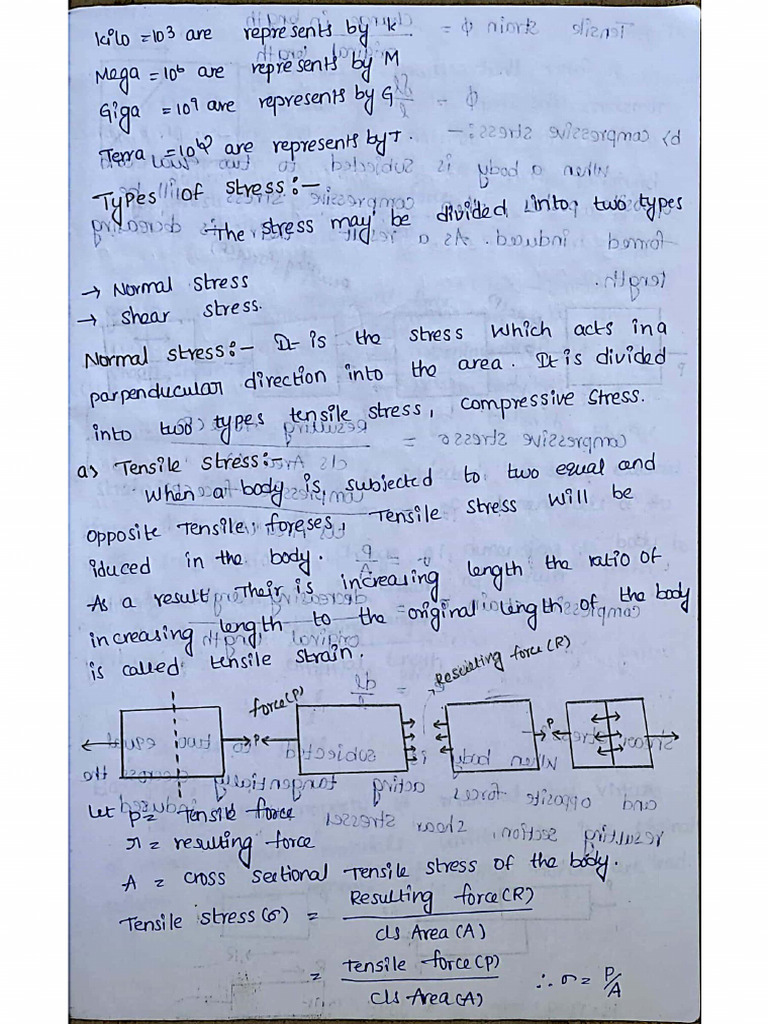 Kilo = 10³ are represents by K
Mega = 10⁶ are represents by M
Giga = 10⁹ are represents by G
Terra = 10¹² are represents by T.
Types of stress:-
The stress may be divided into two types
→ Normal stress
→ Shear stress.
Normal stress:- It is the stress which acts in a
parpenducular direction into the area. It is divided
into two types tensile stress, compressive stress.
a) Tensile stress:-
When a body is subjected to two equal and
opposite Tensile foreses, Tensile stress will be
iduced in the body.
As a result Their is increasing length the ratio of
increasing length to the original length of the body
is called tensile strain.
force(P) Resulting force(R)
P P P
Let P = Tensile force
r = resulting force
A = cross sectional Tensile stress of the body.
Tensile stress(σ) = Resulting force(R)
c/s Area(A)
= Tensile force(P)
c/s Area(A)
∴ σ = P/A